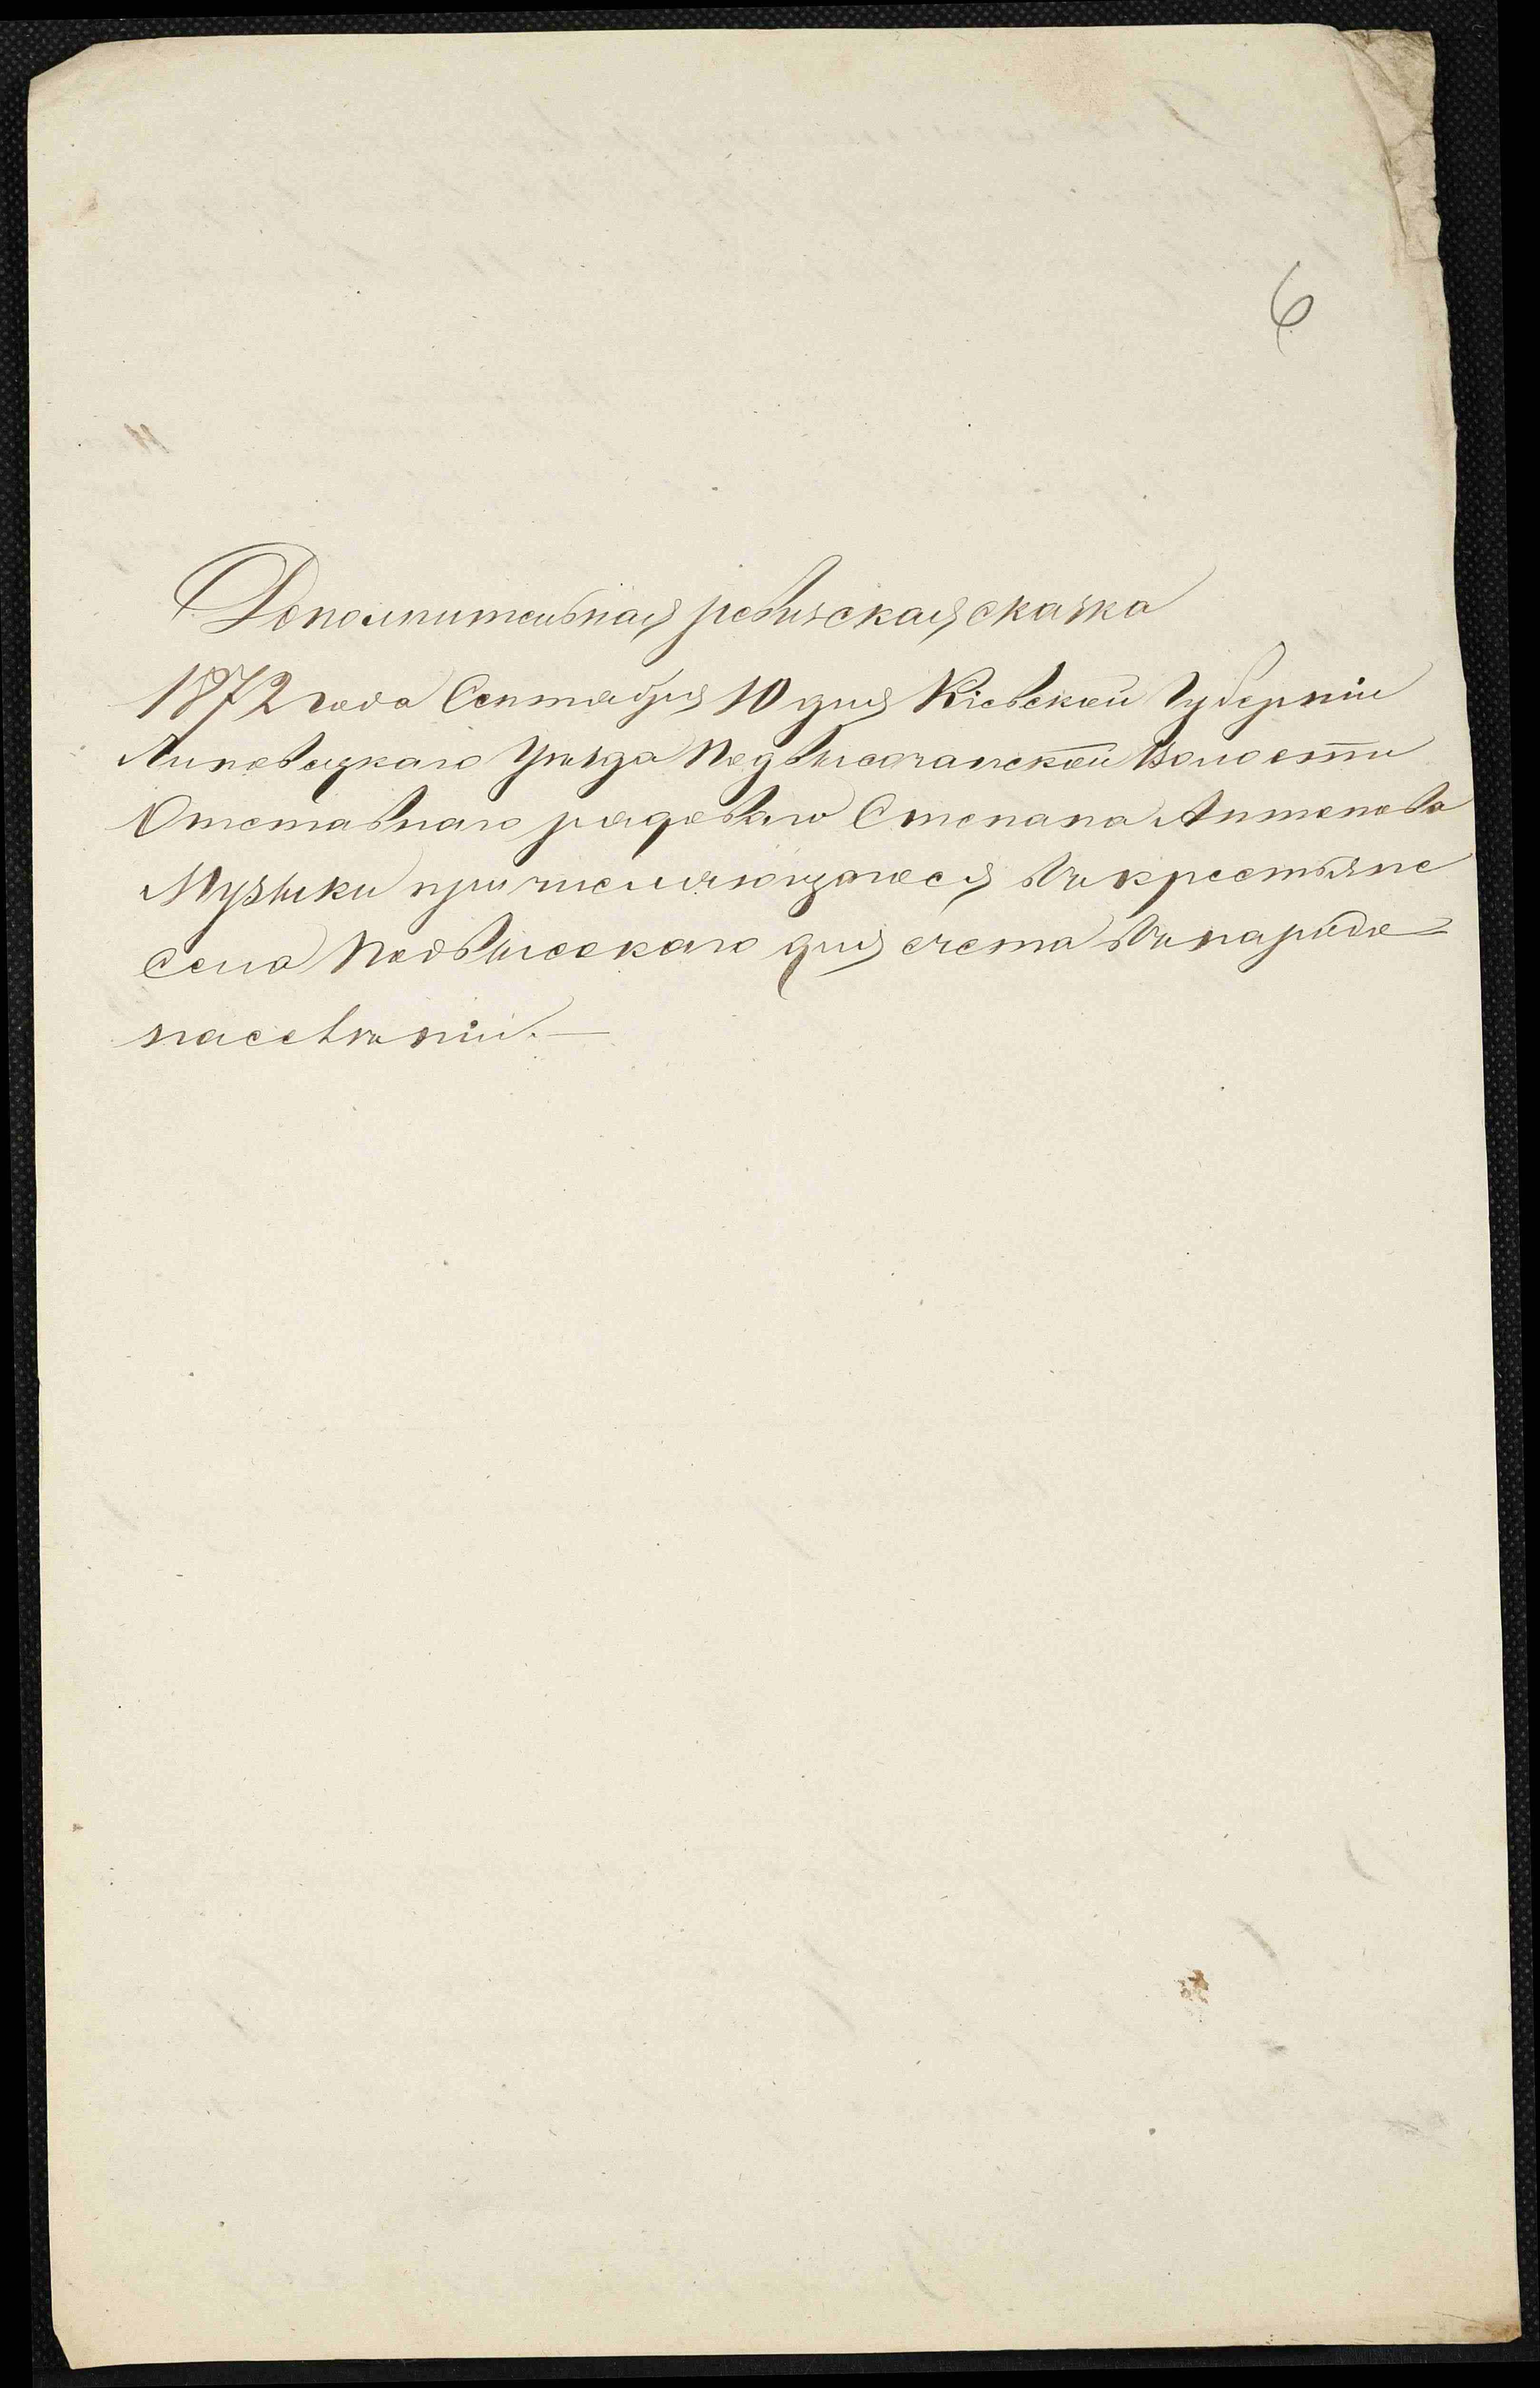 6
Дополнительная ревизская сказка
1872 года Сентября 10 дня Кіевской Губерніи
Липовецкаго Уѣзда Подвысочанской Волости
Отставнаго рядоваго Степана Антонова
Музыки причисляющагося въ крестьяне
Села Подвысокаго для счета въ народо=
населѣніи.—